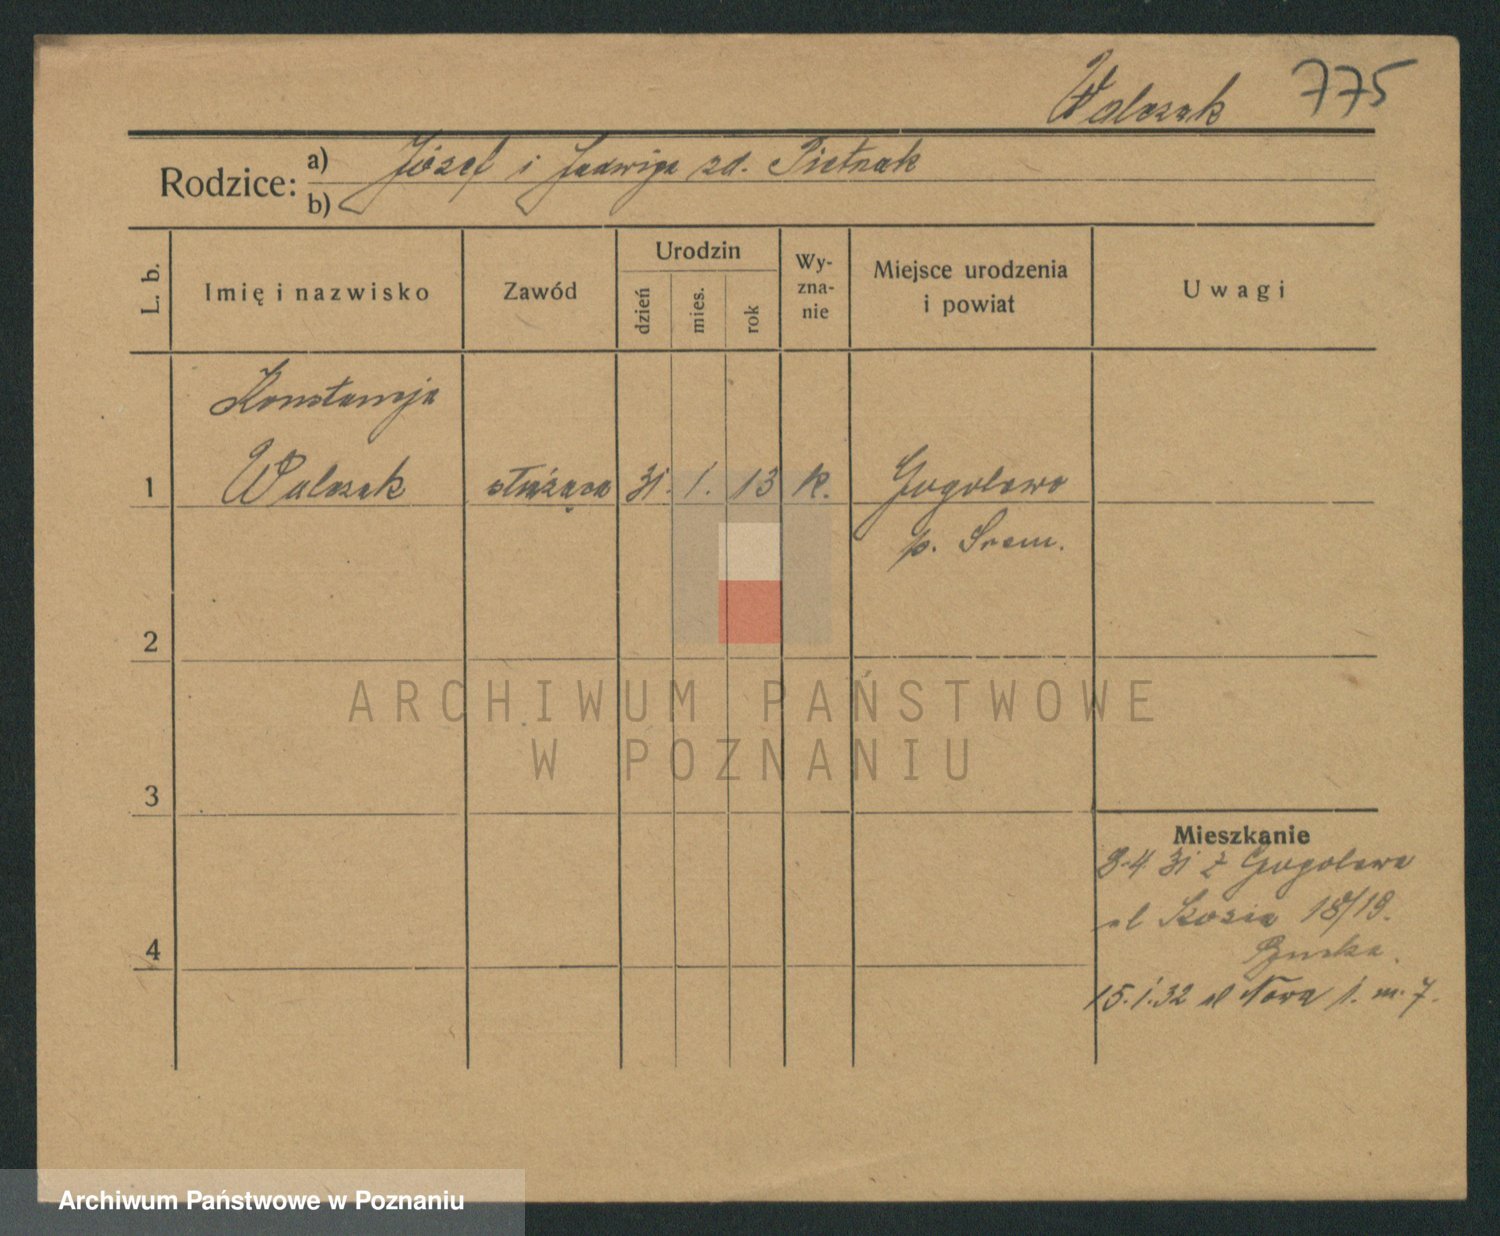 Walczak 775
Rodzice: a) Józef i Jadwiga zd. Pietrzak
b)
L. b.
Imię i nazwisko
Zawód
Urodzin
dzień
mies.
rok
Wy-
zna-
nie
Miejsce urodzenia
i powiat
Uwagi
Konstancja
1 Walczak służąca 31. 1. 13 k. Gogolewo
p. Srem.
2
ARCHIWUM PAŃSTWOWE
W POZNANIU
3
Mieszkanie
8-4 31 z Gogolewa
ul Kozia 18/19.
4
15.1.32 ul Nowa 1. m. 7.
Archiwum Państwowe w Poznaniu